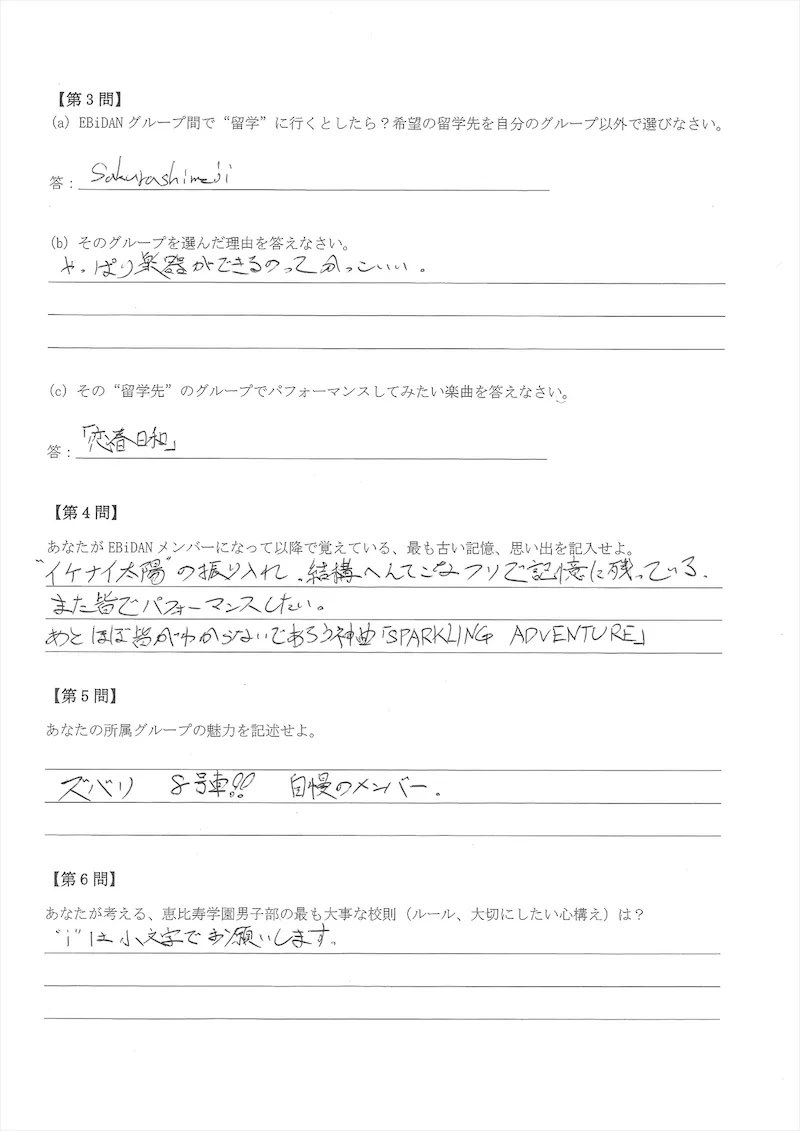 【第3問】
(a) EBiDANグループ間で“留学”に行くとしたら？希望の留学先を自分のグループ以外で選びなさい。
答：Sakurashimeji
(b) そのグループを選んだ理由を答えなさい。
やっぱり楽器ができるのってかっこいい。
(c) その“留学先”のグループでパフォーマンスしてみたい楽曲を答えなさい。
答：「恋春日和」
【第4問】
あなたがEBiDANメンバーになって以降で覚えている、最も古い記憶、思い出を記入せよ。
“イケナイ太陽”の振り入れ、結構へんてこなフリで記憶に残っている、
また皆でパフォーマンスしたい。
あとほぼ皆がわからないであろう神曲「SPARKLING ADVENTURE」
【第5問】
あなたの所属グループの魅力を記述せよ。
ズバリ 8号車!! 自慢のメンバー。
【第6問】
あなたが考える、恵比寿学園男子部の最も大事な校則（ルール、大切にしたい心構え）は？
“i”は小文字でお願いします。